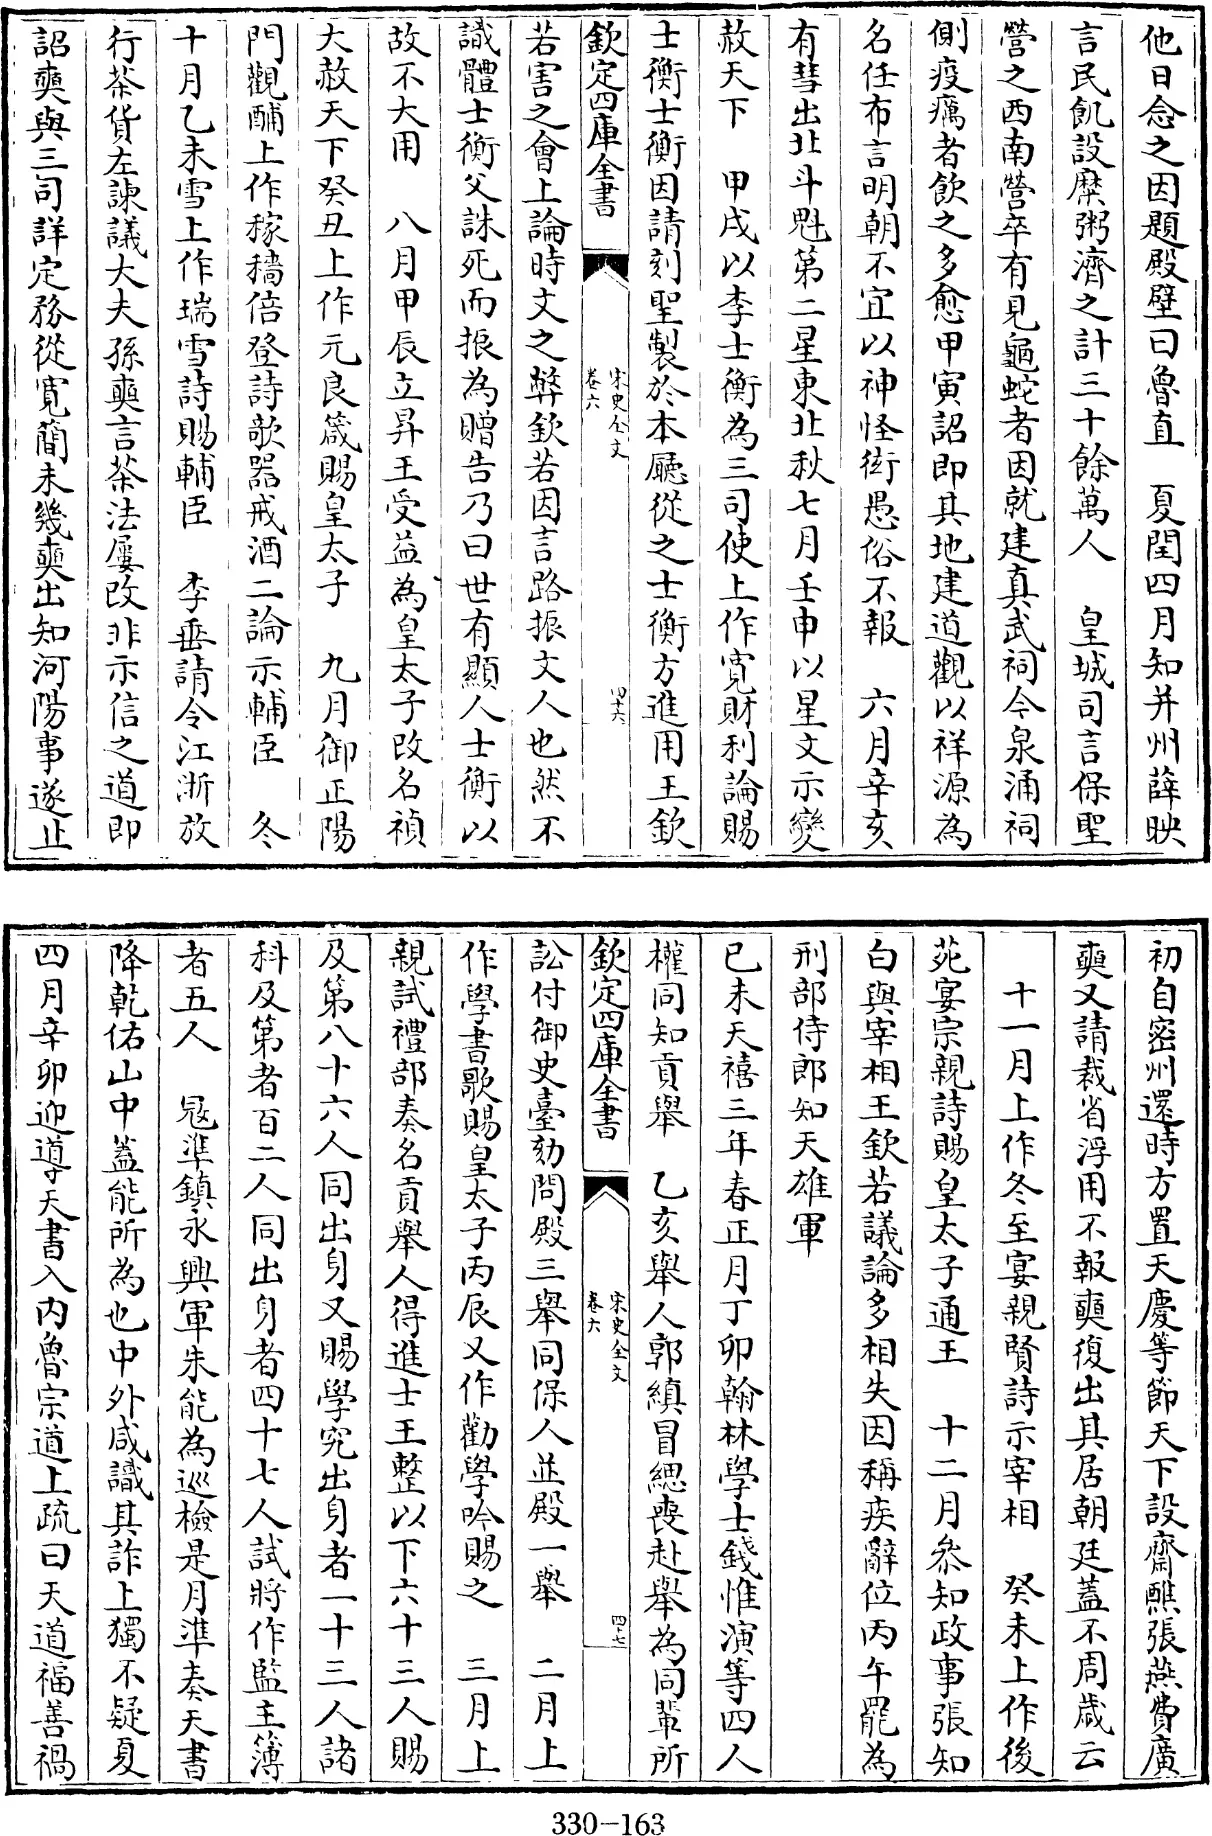 他日念之因題殿壁曰魯直　夏閏四月知并州薛映
言民飢設糜粥濟之計三十餘萬人　皇城司言保聖
營之西南營卒有見龜蛇者因就建真武祠今泉涌祠
側疫癘者飲之多愈甲寅詔即其地建道觀以祥源為
名任布言明朝不宜以神怪衒愚俗不報　六月辛亥
有彗出北斗魁第二星東北秋七月壬申以星文示變
赦天下　甲戌以李士衡為三司使上作寛財利論賜
士衡士衡因請刻聖製於本廳從之士衡方進用王欽
欽定四庫全書
宋史全文
卷六
四十六
若害之會上論時文之弊欽若因言路振文人也然不
識體士衡父誅死而振為贈告乃曰世有顯人士衡以
故不大用　八月甲辰立昇王受益為皇太子改名禎
大赦天下癸丑上作元良箴賜皇太子　九月御正陽
門觀酺上作稼穡倍登詩歌器戒酒二論示輔臣　冬
十月乙未雪上作瑞雪詩賜輔臣　李垂請令江浙放
行茶貨左諫議大夫孫奭言茶法屢改非示信之道即
詔奭與三司詳定務從寛簡未幾奭出知河陽事遂止
初自密州還時方置天慶等節天下設齋醮張燕費廣
奭又請裁省浮用不報奭復出其居朝廷蓋不周歲云
十一月上作冬至宴親賢詩示宰相　癸未上作後
苑宴宗親詩賜皇太子通王　十二月叅知政事張知
白與宰相王欽若議論多相失因稱疾辭位丙午罷為
刑部侍郎知天雄軍
已未天禧三年春正月丁卯翰林學士錢惟演等四人
權同知貢舉　乙亥舉人郭縝冒緦喪赴舉為同輩所
欽定四庫全書
宋史全文
卷六
四十七
訟付御史臺劾問殿三舉同保人並殿一舉　二月上
作學書歌賜皇太子丙辰又作勸學吟賜之　三月上
親試禮部奏名貢舉人得進士王整以下六十三人賜
及第八十六人同出身又賜學究出身者一十三人諸
科及第者百二人同出身者四十七人試將作監主簿
者五人　冦準鎮永興軍朱能為巡檢是月準奏天書
降乾佑山中蓋能所為也中外咸識其詐上獨不疑夏
四月辛卯迎導天書入内魯宗道上疏曰天道福善禍
330-163